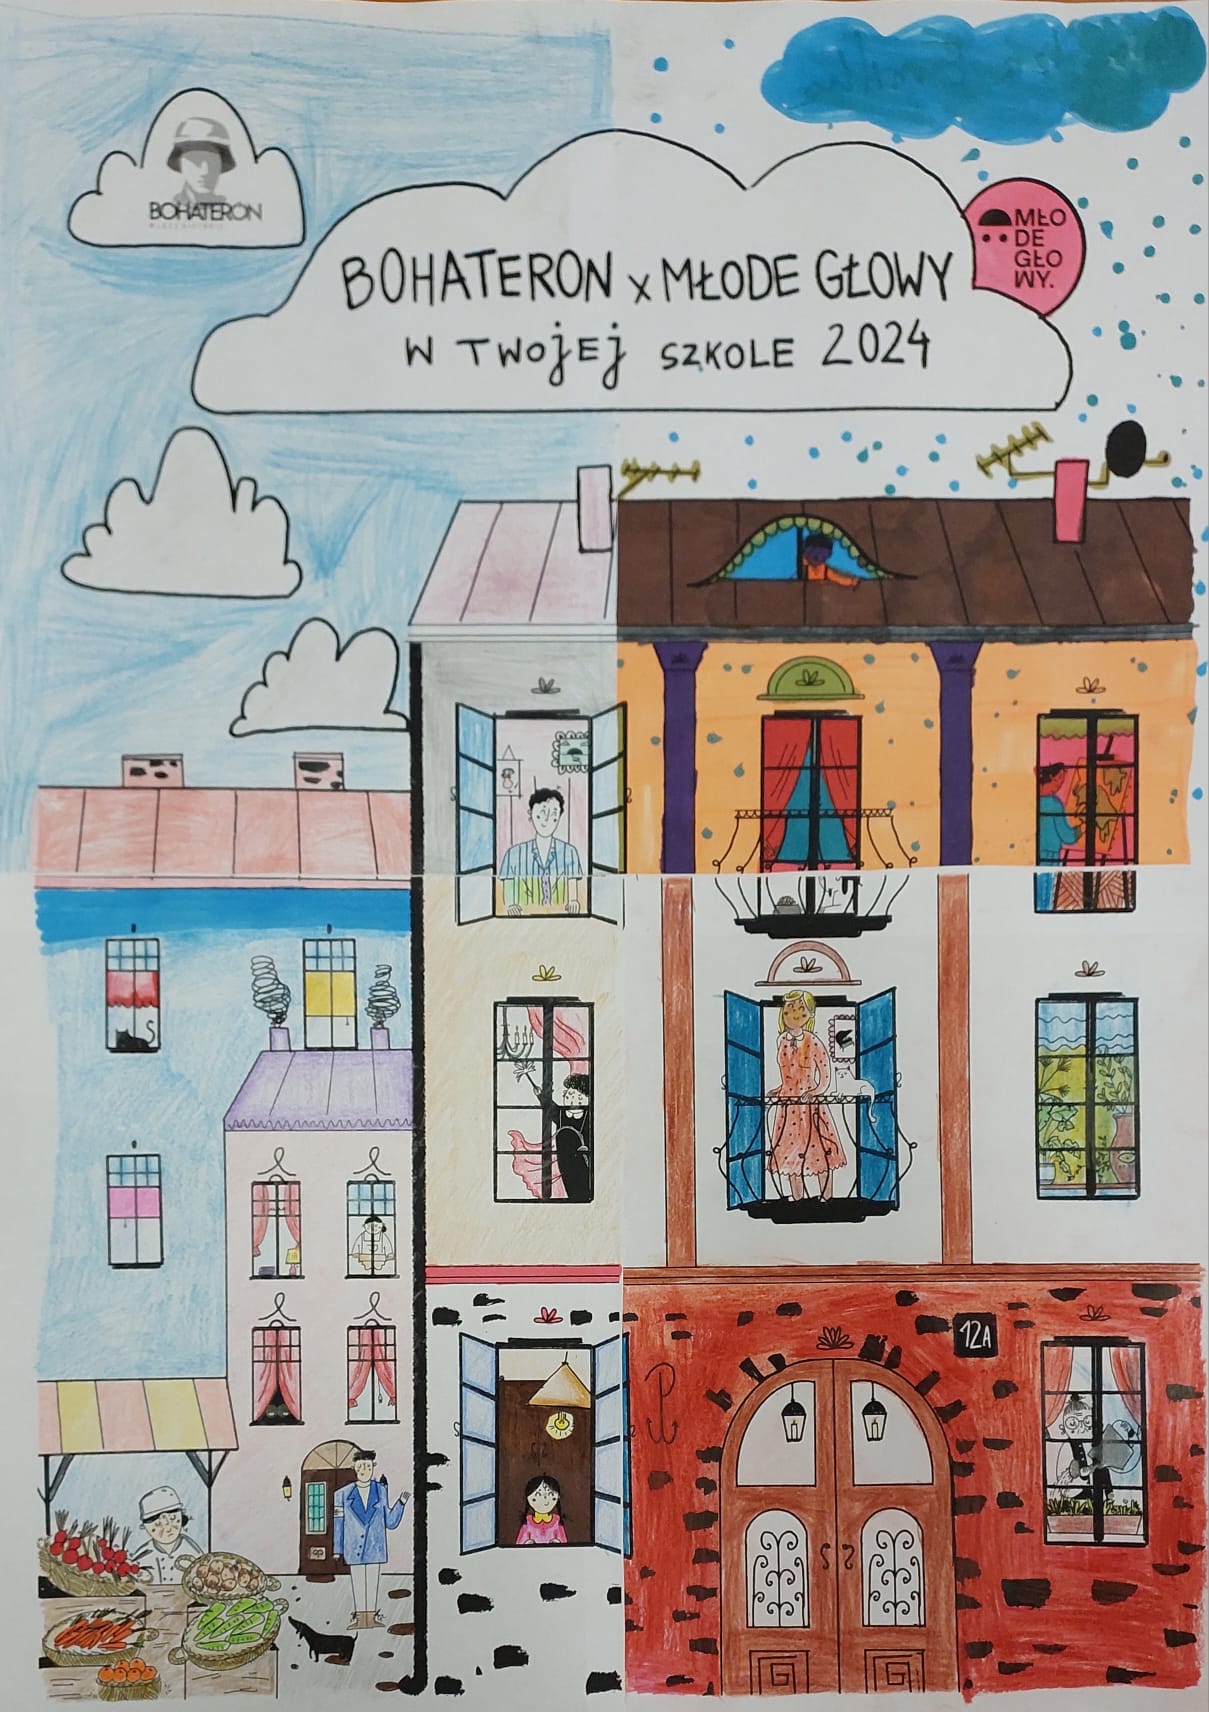 BOHATERON
MŁO
DE
GŁO
WY.
BOHATERON x MŁODE GŁOWY
W TWOJEJ SZKOLE 2024
12A